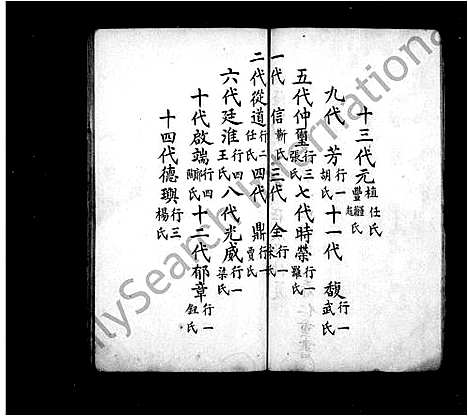 十三代元植任氏
豐
氏
九代 芳行一胡氏 十一代 馥行一武氏
五代仲璽行三張氏 七代時榮行一羅氏
一代 信靳氏 三代 全行一宋氏
二代從道行二任氏 四代 鼎行一賈氏
六代廷淮行四王氏 八代光威行一梁氏
十代啟端行四氏 十二代郁章行一鈕氏
十四代德璵行三楊氏
lySearch International